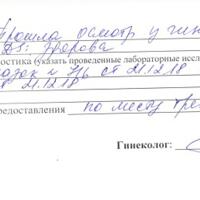 Прошла осмотр у гин
DS: Здорова
остика (указать проведенные лабораторные иссл
мазок на г/ф от 21.12.18
от 21.12.18
предоставления по месту тре
Гинеколог: